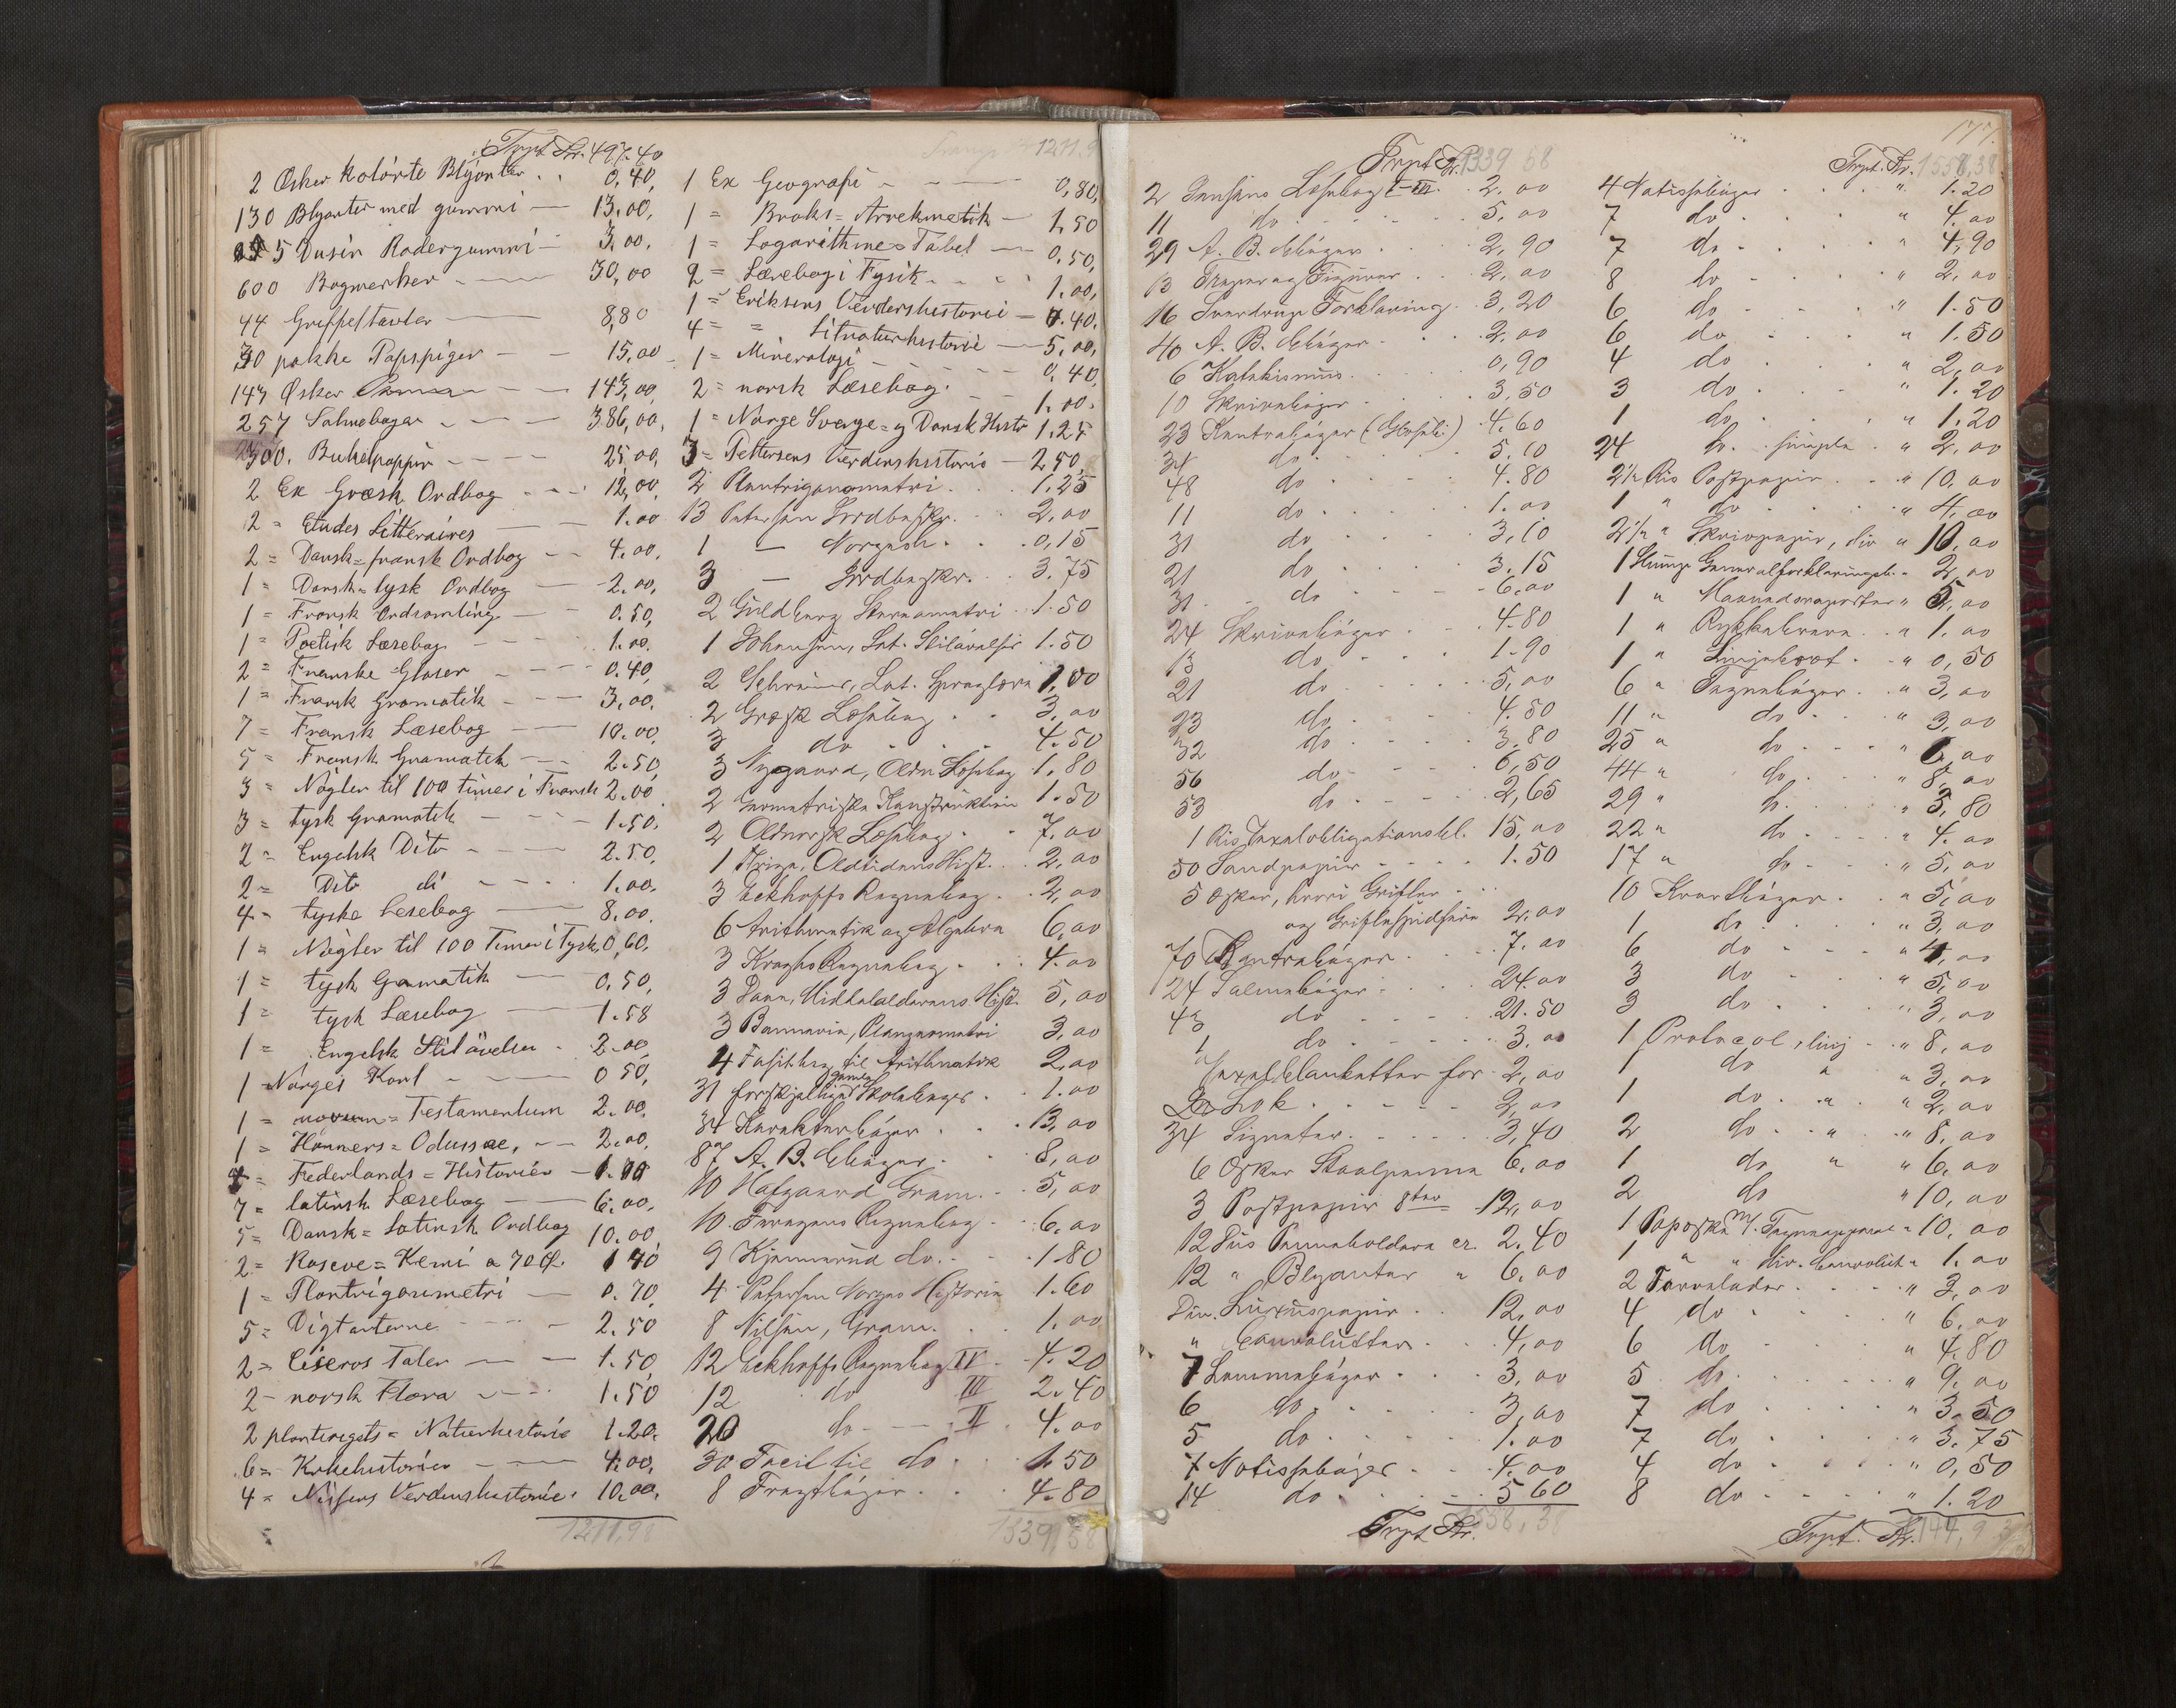 Trpt Kr. 497.40
2 Æsker Kolorte Blyanter 0,40
130 Blyanter med gummi 13,00
5 Dusin Radergummi 3,00
600 Bogmerker 30,00
44 Griffeltavler 8,80
30 pakke Papspiger 15,00
147 Æsker 147,00
257 Salmebøger 386,00
2500 25,00
2 Ex Græsk Ordbog 12,00
2 = Etudes Litteraires 1.00
2 = Dansk = fransk Ordbog 4.00
1 = Dansk = tysk Ordbog 2.00
1 = Fransk Ordsamling 0.50
1 = Poetisk Læsebog 1.00
2 = Franske Gloser 0.40
1 = Fransk Gramatik 3.00
7 = Fransk Læsebog 10.00
5 = Fransk Gramatik 2.50
3 = Nögler til 100 timer i Fransk 2.00
3 = tysk Gramatik 1.50
2 = Engelsk Dito 2.50
2 = Dito di 1.00
4 = tyske Lesebog 8.00
1 = Nögler til 100 Timer i Tysk 0,60
1 = tysk Gramatik 0.50
1 = tysk Læsebog 1.58
1 = Engelsk Stilövelser 2.00
1 = Norges Kart 0 50
1 = novum = Testamentum 2.00
1 = Homers = Odussae 2.00
Federlands = Historier
7 = latinsk Læsebog 6.00
5 = Dansk = Latinsk Ordbog 10.00
2 = Roscoe = Kemi a 70 Ø. 1 40
1 = Plantrigonometri 0.70
5 = Digtarterne 2.50
2 = Ciseros Taler 1.50
2 - norsk Flora 1.50
2 planterigets = Naturhistorie 1.20
6 = Kirkehistorier 4.00
4 = Nissens Verdenshistorie 10.00
1211,98
Transp 1211.9
1 Ex Geografi 0,80
1 = Broks = Arrekmetik 1,50
1 = Logarithme = Tabel 0,50
2 = Lærebog i Fysik 1.00
1 = Eriksens Verdershistorie 4.40
4 = = Lituraturhistorie 5.00
1 = Mineralogi 0.40
2 = norsk Læsebog 1.00
1 = Norge Sverge = g Dansk Histo 1.25
3 = Pettersens Verdenshistorie 2 50
2 Plantrigonometri 1.25
13 Petersen Jordbeskr. 2,00
1 — Norges 0,15
3 — Jordbeskr. 3.75
2 Guldberg Stereometri 1.50
1 Johansen, Lat. Stiløvelser 1.50
2 Schreiner, Lat. Sproglære 1,00
2 Græsk Læsebog 3,00
3 do 4.50
3 Nygaard, Oldn Læsebog 1.80
2 Geometriske Konstruktion 1.50
2 Oldnorsk Læsebog 7,00
1 Krige, Oldtidens Hist. 2.00
3 Eckhoffs Regnebog 2,00
6 Arithmetik og Algebra 6,00
3 Kraghs Regnebog 4.00
3 Daae, Middelalderens Hist. 5,00
3 Bonnevie, Plangeometri 3,00
4 Fasitbog til Arithmetik 2,00
31 forskjellige gamle Skolebøger 1.00
34 Karakterbøger 13,00
87 A. B. C bøger 8,00
10 Hofgaard Gram. 5,00
10 Faragens Regnebog 6,00
9 Kjennerud do 1.80
4 Petersen Norges Historie 1.60
8 Nilsen, Gram. 1.00
12 Eckhoffs Regnebog IV 4.20
12 do III 2.40
20 do II 4.00
30 Facil tie do 1.50
8 Fragtbøger 4.80
1339,58
Trpt Kr. 1339 58
2 Jensens Læsebog I-III 2.00
11 do 5,00
29 A. B. C bøger 2,90
13 Tropper og Figurer 2,00
16 Sverdrups Forklaring 3,20
40 A. B. C bøger 2,00
6 Katekismus 0,90
10 Skrivebøger 3,50
23 Kontrabøger 4.60
34 do 5.10
48 do 4.80
11 do 1.00
31 do 3,10
21 do 3.15
31 do 6,00
24 Skrivebøger 4.80
13 do 1.90
21 do 5,00
23 do 4.50
32 do 3,80
56 do 6,50
53 do 2,65
1 Ris Vexelobligationsbl. 15,00
50 Sandpapir 1.50
5 Æsker, hvori Grifler
og Griflespidsere 2,00
70 Kontrabøger 7.00
24 Salmebøger 24.00
43 do 21.50
1 do 3.00
Vexelblanketter for 2,00
Lok 2,00
34 Signeter 3,40
6 Æsker Staalpenne 6,00
3 Postpapir 8tav 12,00
12 Dus Penneholdere er 2.40
12 " Blyanter " 6,00
Div. Luxuspapir 12,00
" Convolutter 4,00
7 Lommebøger 3,00
6 do 3,00
5 do 1.00
7 Notissebøger 4.00
14 do 5 60
Trpt Kr. 1558,38
177.
Trpt. Kr. 1558,38
4 Notissebøger " 1.20
7 do " 4,00
7 do " 4,90
8 do " 2,00
6 do " 1.50
6 do " 1.50
4 do " 2,00
3 do " 1.20
1 do " 1.20
24 do simple " 2,00
2½ Ris Postpapir " 10,00
1 " do " 4,00
2½ " Skrivpapir, div " 10,00
1 Slump Generalforklaringsb. " 2,00
1 " Maanedsrapporter " 5,00
1 " Rykkebreve " 1.00
1 " Linjebret " 0,50
6 " Tegnebøger " 3,00
11 " do " 3,00
25 " do " 6,00
44 " do " 8,00
29 " do " 5,80
22 " do " 4.00
17 " do " 5,00
10 Kvartbøger " 5,00
1 do " 3,00
6 do " 4,00
3 do " 5,00
3 do " 3,00
1 Protocol, linj " 8,00
1 do " " 3,00
1 do " " 2,00
2 do " " 8,00
1 do " " 6,00
2 do " 10,00
1 Papæske m/. Tegneapparat " 10,00
1 " " div. Convolut " 1.00
2 Farvelader " 3,00
4 do " 6,00
6 do " 4.80
5 do " 9,00
7 do " 3.50
7 do " 3.75
4 do " 0,50
8 do " 1.20
Trpt. Kr.